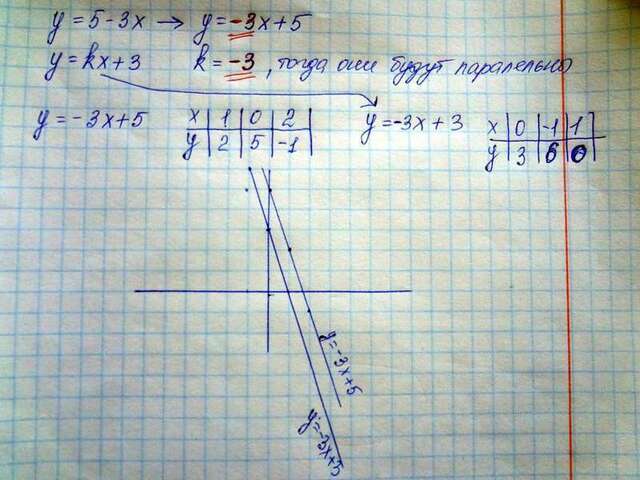 y = 5 - 3x → y = -3x + 5
y = kx + 3 k = -3, тогда они будут паралельны
y = -3x + 5 x | 1 | 0 | 2 y = -3x + 3 x | 0 | -1 | 1
y | 2 | 5 | -1 y | 3 | 6 | 0
y = -3x + 5
y = -3x + 5